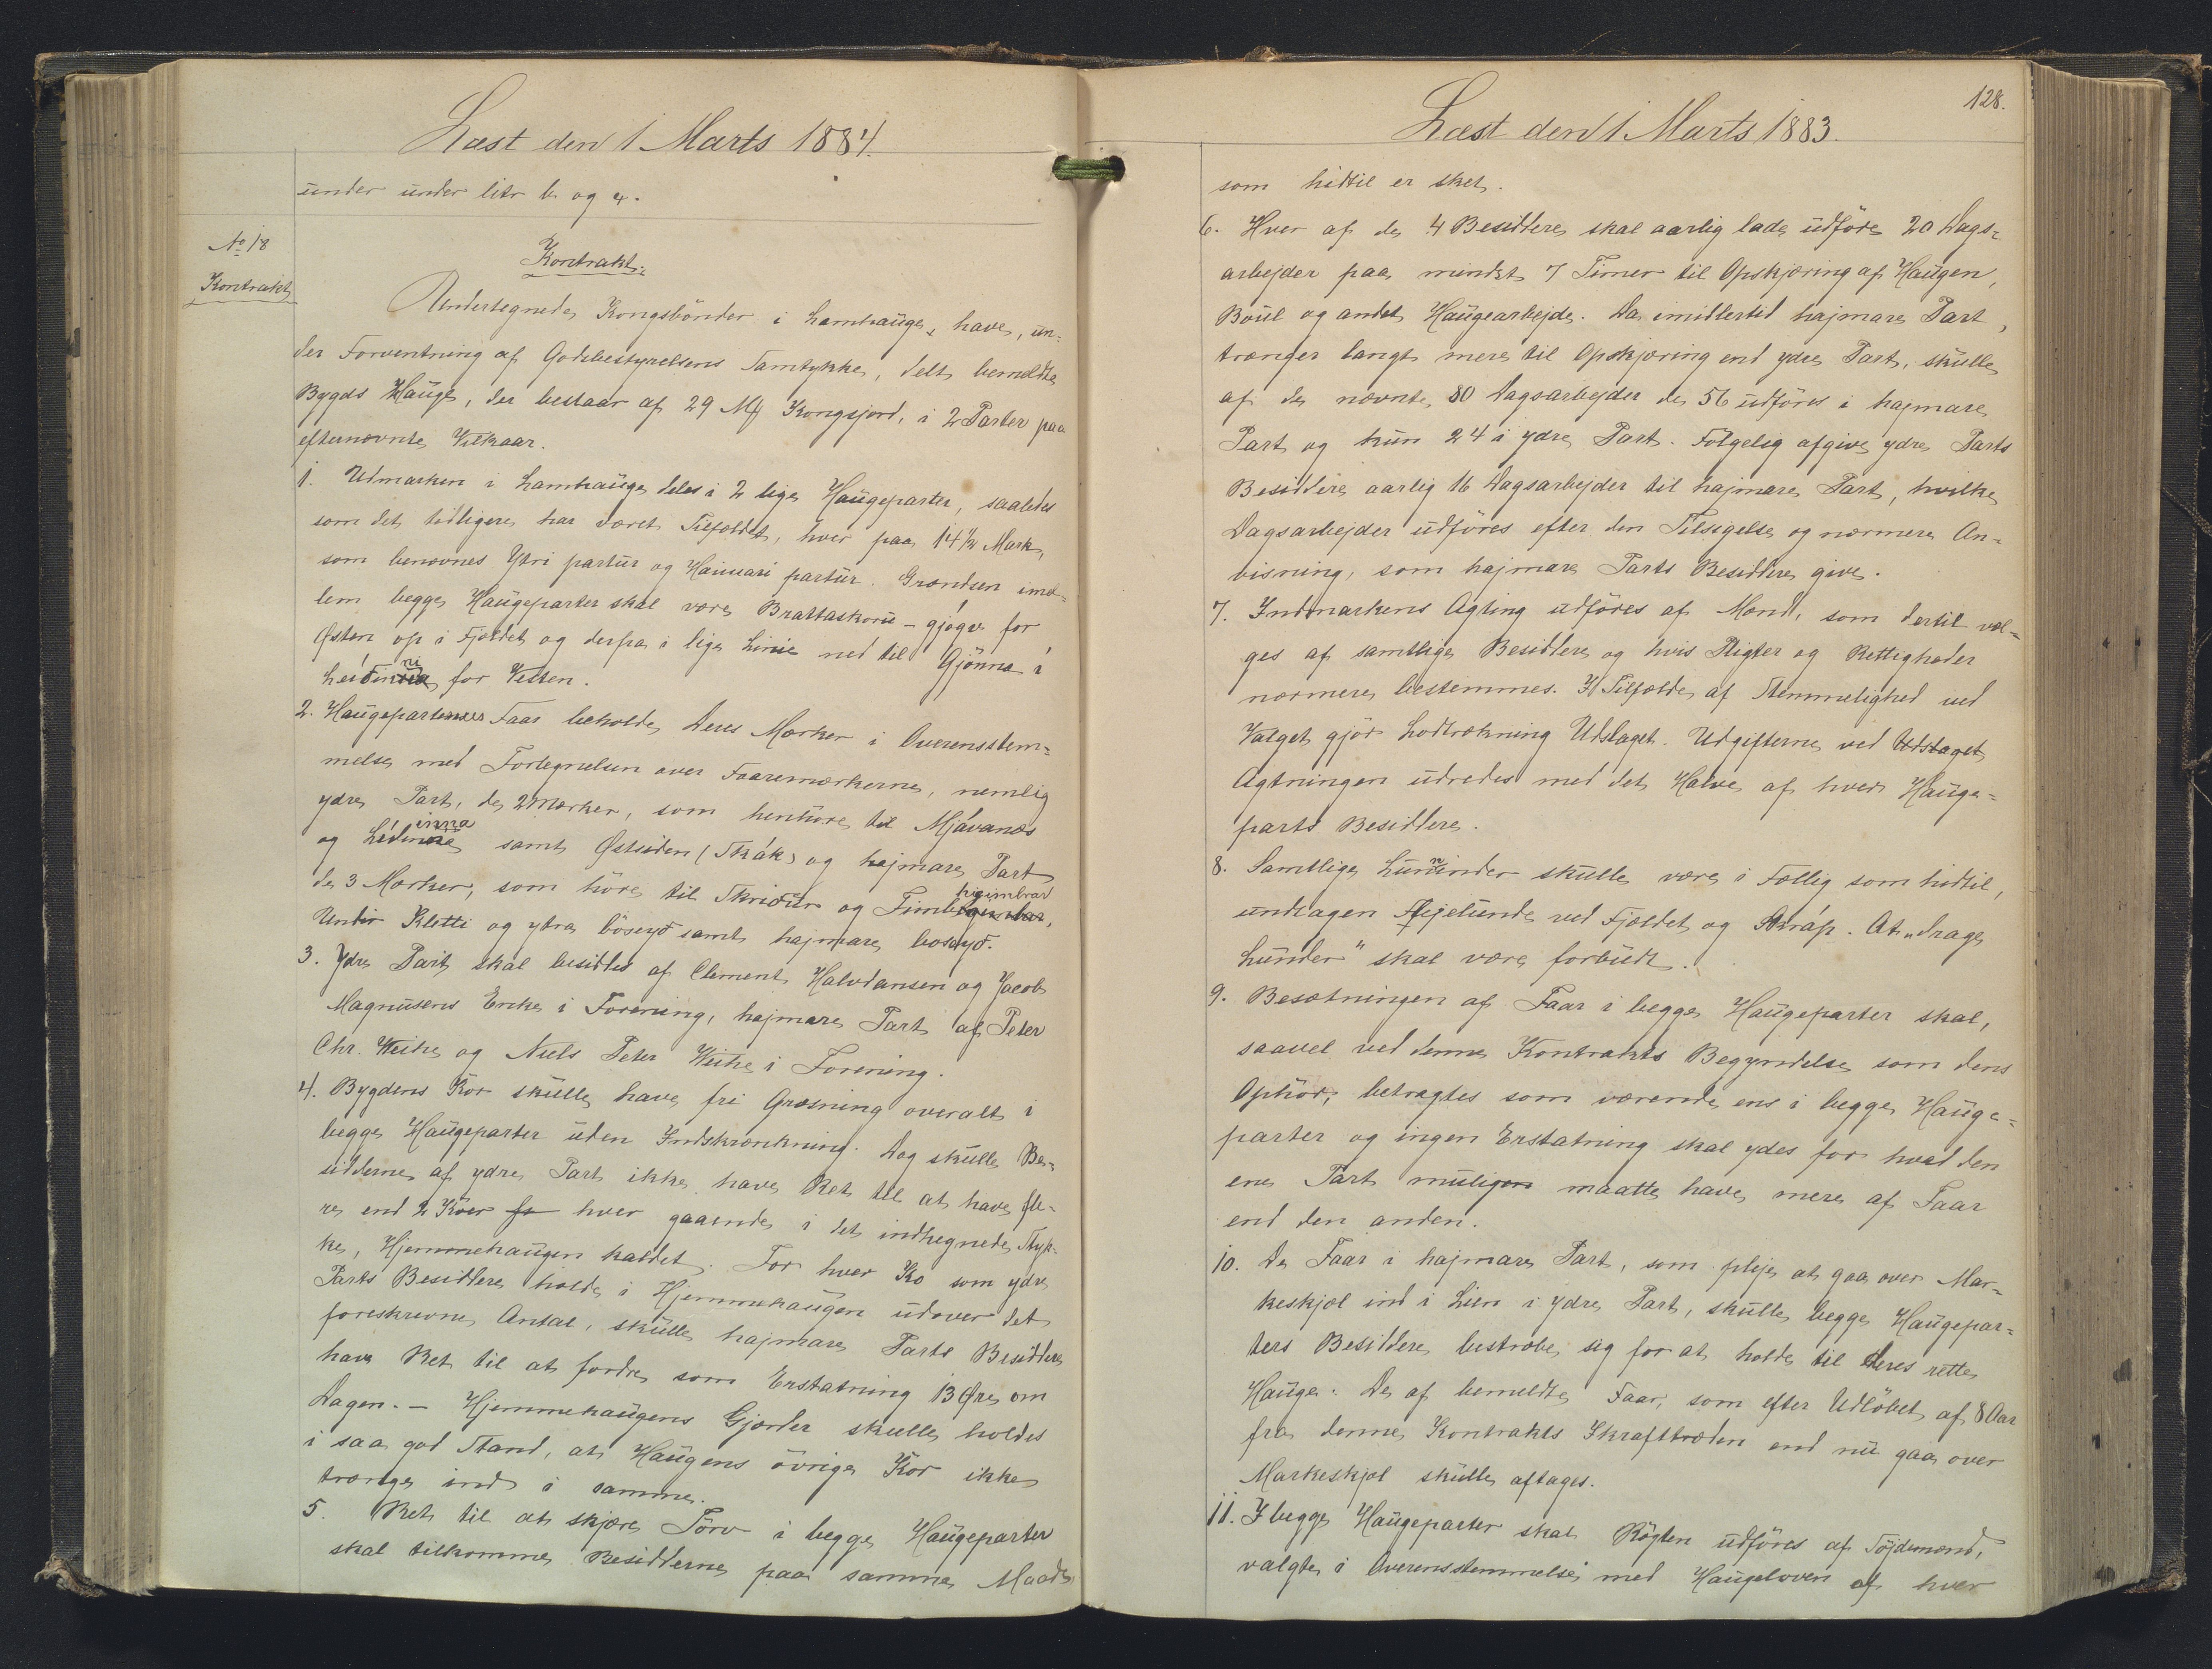 Læst den 1 Marts 1884.
under under litr b og c.
No 18
Kontrakt
Kontrakt.
Undertegnede Kongsbönder i Lamhauge, have, un-
der Forventning af Godsbestyrelsens Samtykke, delt bemeldte
Bygds Hauge, der bestaar af 29 Mk Kongsjord, i 2 Parter paa
efternævnte Vilkaar.
1. Udmarken i Lamhauge deles i 2 lige Haugeparter, saaledes
som det tidligere har været Tilfældet, hver paa 14½ Mark,
som benævnes Ytri partur og Haimari partur. Grændsen imel-
lem begge Haugeparter skal være Brattaskoru-gjógv for
Østen op i Fjeldet og derfra i lige Linie ned til Gjönna í
for Vesten.
2. Haugeparternes Faar beholde deres Mærker i Overensstem-
melse med Fortegnelsen over Faaremærkerne, nemlig
ydre Part, de 2 Mærker, som henhöre til Mjávanes
og samt Østsiden (Skák) og hajmare Part
de 3 Mærker, som höre til Skridur og
Undir Kletti og ytra böseyð samt hajmare boseyð.
3. Ydre Part skal besiddes af Clement Halvdansen og Jacob
Magnusens Enke i Forening, hajmare Part af Peter
Chr. Weihe og Niels Peter Weihe i Forening.
4. Bygdens Kör skulle have fri Græsning overalt i
begge Haugeparter uden Indskrænkning. Dog skulle Be-
sidderne af ydre Part ikke have Ret til at have fle-
re end 2 Köer fo hver gaaende i det indhegnede Styk-
ke, Hjemmehaugen kaldet. For hver Ko som ydre
Parts Besiddere holde i Hjemmehaugen udover det
foreskrevne Antal, skulle hajmare Parts Besiddere
have Ret til at fordre som Erstatning 13 Øre om
Dagen. - Hjemmehaugens Gjærder skulle holdes
i saa god Stand, at Haugens övrige Kör ikke
trænge ind i samme.
5. Ret til at skjære Törv i begge Haugeparter
skal tilkomme Besidderne paa samme Maade
128.
Læst den 1 Marts 1883.
som hidtil er sket.
6. Hver af de 4 Besiddere skal aarlig lade udföre 20 Dags-
arbejder paa mindst 7 Timer til Opskjæring af Haugen,
Boul og andet Haugearbejde. Da imidlertid hajmare Part,
trænger langt mere til Opskjæring end ydre Part, skulle
af de nævnte 80 Dagsarbejder de 56 udföres i hajmare
Part og kun 24 i ydre Part. Fölgelig afgive ydre Parts
Besiddere aarlig 16 Dagsarbejder til hajmare Part, hvilke
Dagsarbejder udföres efter den Tilsigelse og nærmere An-
visning, som hajmare Parts Besiddere give.
7. Indmarkens Agting udföres af Mænd, som dertil væl-
ges af samtlige Besiddere og hvis Pligter og Rettigheder
nærmere bestemmes. I Tilfælde af Stemmelighed ved
Valget gjör Lodtrækning Udslaget. Udgifterne ved Udslaget
Agtningen udredes med det Halve af hver Hauge-
parts Besiddere.
8. Samtlige Lunninder skulle være i Fællig som hidtil,
undtagen Flejelunde ved Fjeldet og Skráp. At „drage
Lunder" skal være forbudt.
9. Besætningen af Faar i begge Haugeparter skal,
saavel ved denne Kontrakts Begyndelse som dens
Ophör, betragtes som værende ens i begge Hauge-
parter og ingen Erstatning skal ydes for hvad den
ene Part muligen maatte have mere af Faar
end den anden.
10. De Faar i hajmare Part, som pleje at gaa over Mar-
keskjel ind i Lien i ydre Part, skulle begge Haugepar-
ters Besiddere bestræbe sig for at holde til deres rette
Hauge. De af bemeldte Faar, som efter Udlöbet af 8 Aar
fra denne Kontrakts Ikrafttræden end nu gaa over
Markeskjel skulle aftages.
11. I begge Haugeparter skal Rögten udföres af Föjdemænd,
valgte i Overensstemmelse med Haugeloven af hver